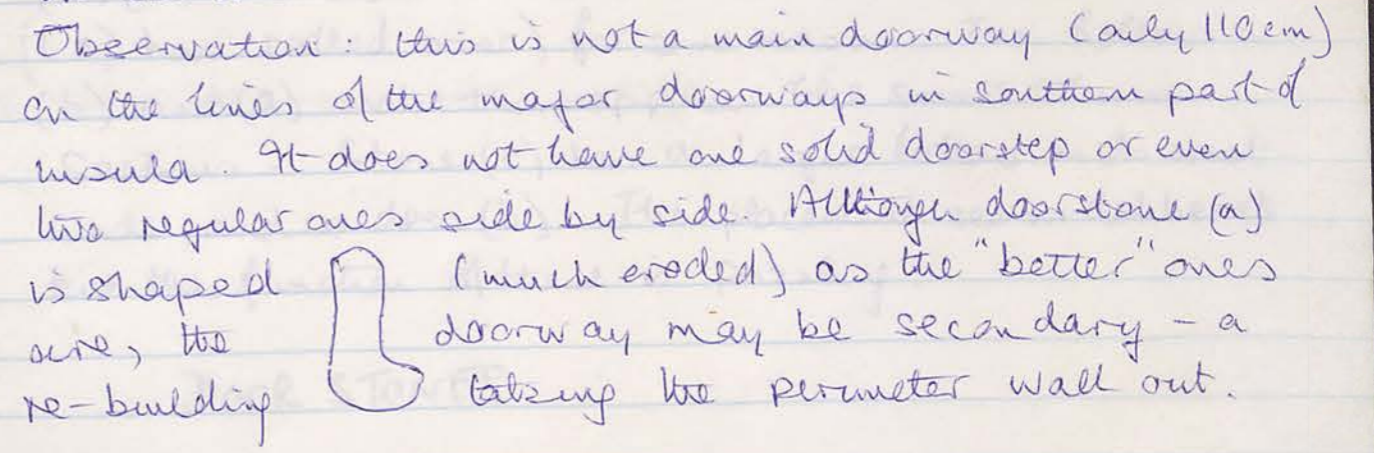 Observation: this is not a main doorway (only 110cm)
on the lines of the major doorways in southern part of
insula. It does not have one solid doorstep or even
two regular ones side by side. Although doorstone (a)
is shaped (much eroded) as the "better" ones
are, the doorway may be secondary - a
re-building taking the perimeter wall out.